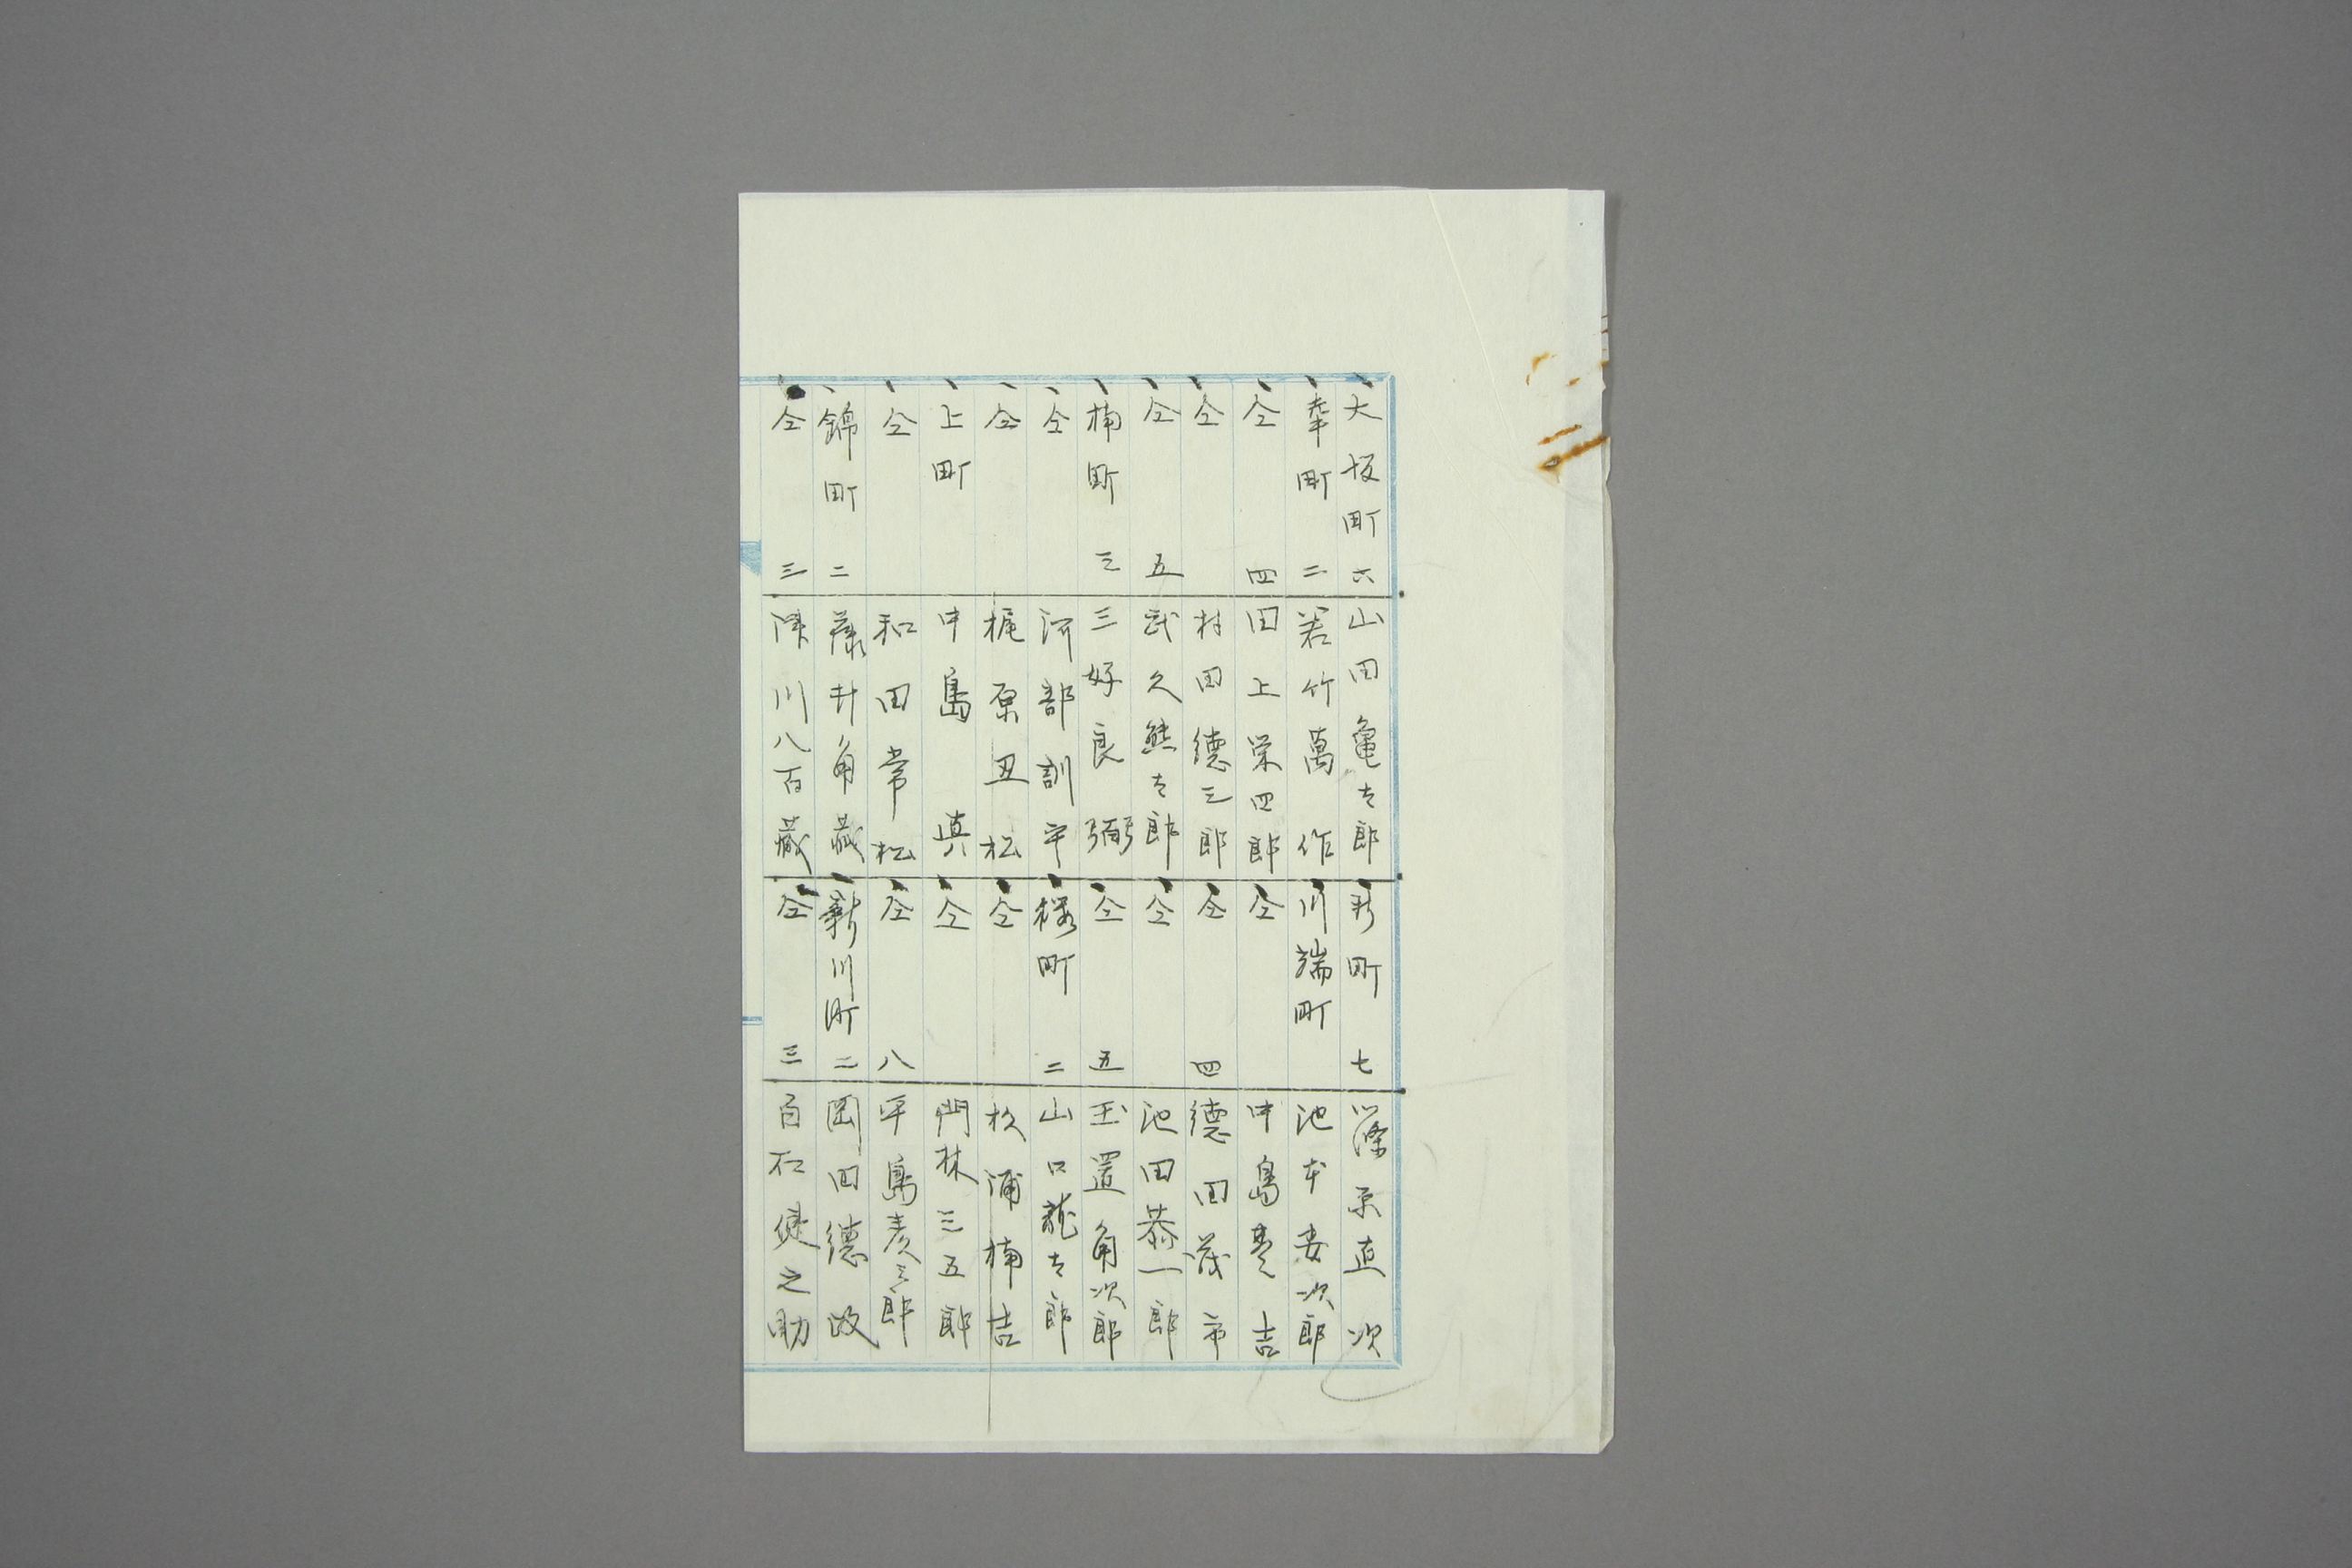 大坂町 六 山田亀太郎
幸町 二 若竹萬作
仝 四 田上栄四郎
仝 村田徳三郎
仝 五 武久熊太郎
楠町 三 三好良弥
仝 河部訓平
仝 梶原丑松
上町 中島真
仝 和田常松
錦町 二 藤井角蔵
仝 三 陳川八百蔵
新町 七 篠原直次
川端町 池本安次郎
仝 中島甚吉
仝 四 徳田茂市
仝 池田恭一郎
仝 五 玉置角次郎
桜町 二 山口龍太郎
仝 松浦楠吉
仝 門林三五郎
仝 八 平島彦三郎
新川町 二 岡田徳政
仝 三 百石健之助